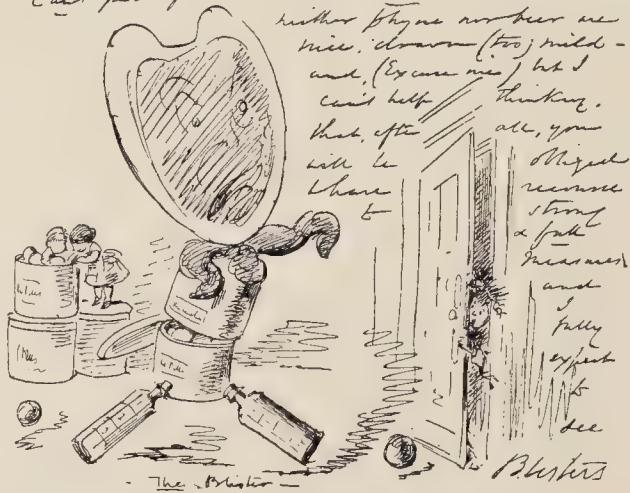 neither Thyme nor beer are
nice, drawn (too) mild -
and, (Excuse me) but I
can't help thinking.
that, after all, you
will be obliged
to have recourse
to strong
& full
measures
and
I
fully
expect
to
see
Blisters
Pills
- The Blister -